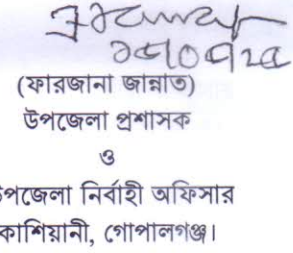 (ফারজানা জান্নাত)
উপজেলা প্রশাসক
ও
উপজেলা নির্বাহী অফিসার
কাশিয়ানী, গোপালগঞ্জ।